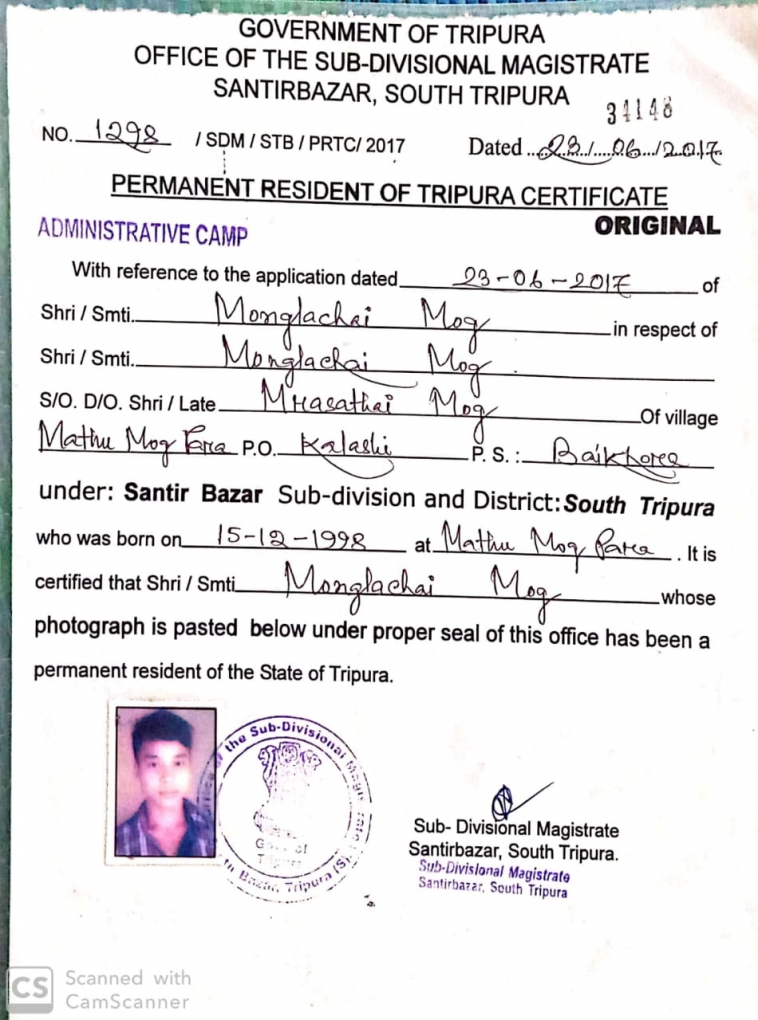 GOVERNMENT OF TRIPURA
OFFICE OF THE SUB-DIVISIONAL MAGISTRATE
SANTIRBAZAR, SOUTH TRIPURA
34148
NO. 1298 / SDM / STB / PRTC/ 2017 Dated ..23./....06.../2.017
PERMANENT RESIDENT OF TRIPURA CERTIFICATE
ADMINISTRATIVE CAMP ORIGINAL
With reference to the application dated 23-06-2017 of
Shri / Smti. Monglachai Mog in respect of
Shri / Smti. Monglachai Mog
S/O. D/O. Shri / Late Mrasathai Mog Of village
Mathu Mog Para P.O. Kalashi P. S. : Baikhora
under: Santir Bazar Sub-division and District: South Tripura
who was born on 15-12-1998 at Mathu Mog Para . It is
certified that Shri / Smti. Monglachai Mog whose
photograph is pasted below under proper seal of this office has been a
permanent resident of the State of Tripura.
of the Sub-Divisional Magistrate
Govt. of
Tripura
Bazar, Tripura (S)
Sub- Divisional Magistrate
Santirbazar, South Tripura.
Sub-Divisional Magistrate
Santirbazar, South Tripura
CS Scanned with
CamScanner